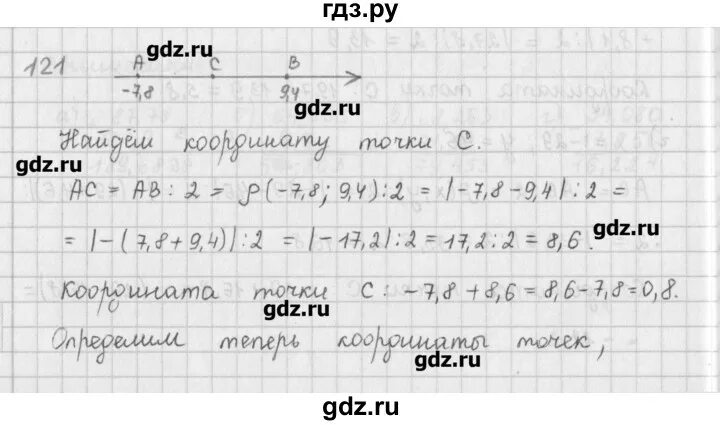 гдз.ру
gdz.ru
121
A C B
-7,8 9,4
gdz.ru
Найдём координату точки C.
gdz.ru
AC = AB : 2 = ρ(-7,8; 9,4) : 2 = |-7,8-9,4| : 2 =
= |-(7,8+9,4)| : 2 = |-17,2| : 2 = 17,2 : 2 = 8,6.
gdz.ru
Координата точки C: -7,8 + 8,6 = 8,6-7,8 = 0,8.
gdz.ru
Определим теперь координаты точек,
gdz.ru